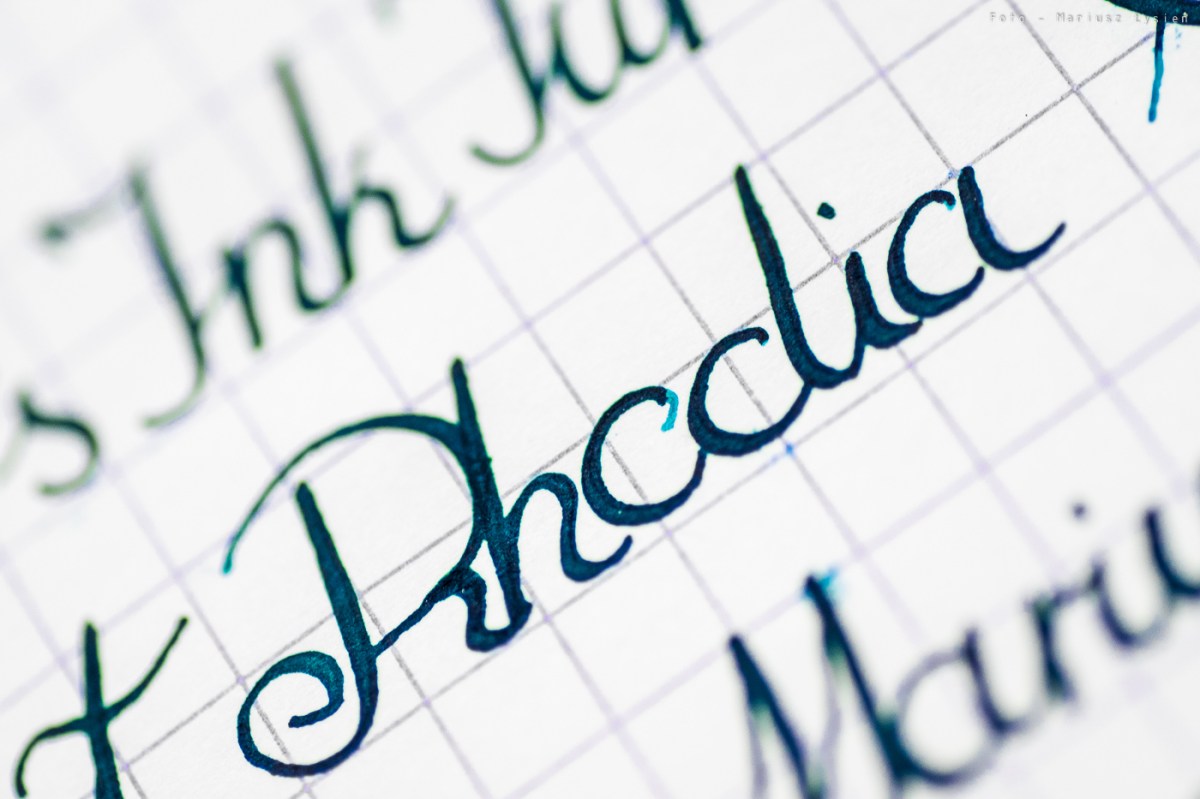 Foto - Mariusz Lysień
s Ink
t Rhodia
Mariu